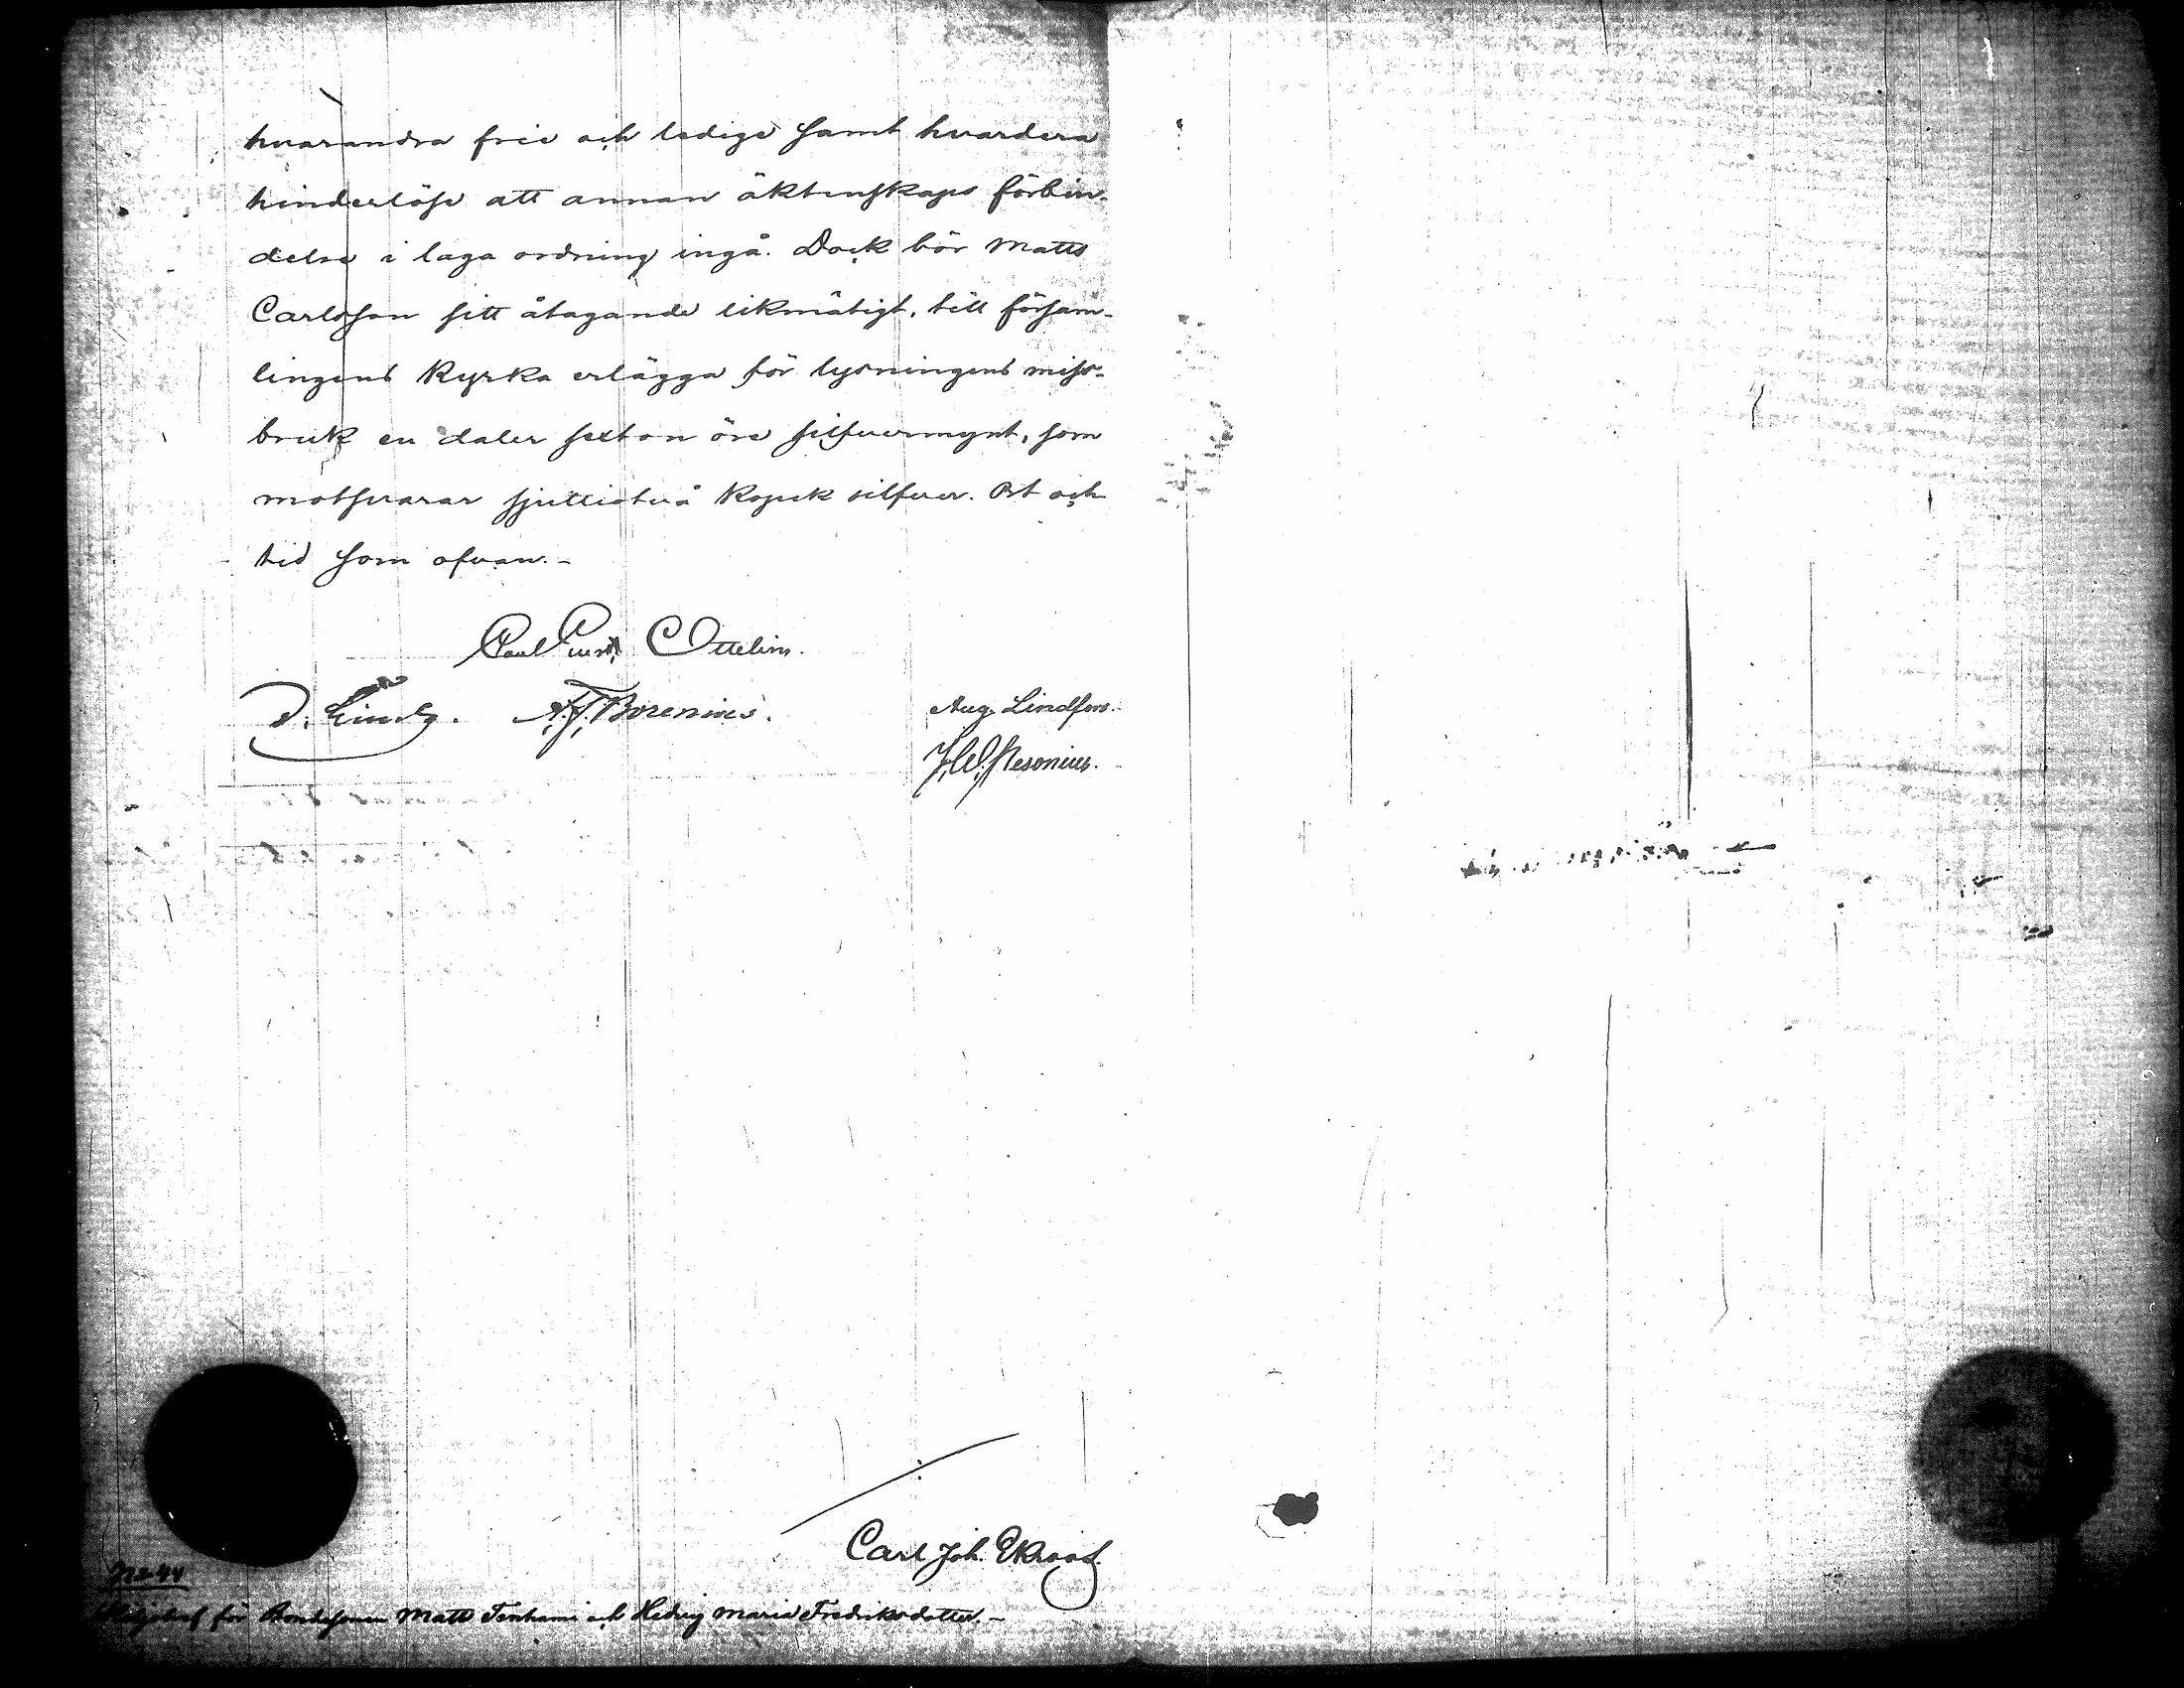 hvarandra frie och ledige samt hvardera
hinderlöse att annan äktenskaps förbin-
delse i laga ordning ingå. Dock bör Matts
Carlsson sitt åtagande likmätigt, till försam-
lingens Kyrka erlägga för lysningens miss-
bruk en daler sexton öre silfvermynt, som
motsvarar sjuttiotvå Kopek silfver. Ort och
tid som ofvan.-
Carl Gust. Ottelin.
A. F. Borenius.
Aug. Lindfors.
J. W. Nesonius.
Carl Joh. Ekroos
No 44
för Bondesonen Matts Tenhami och Hedvig Maria Fredriksdotter.-